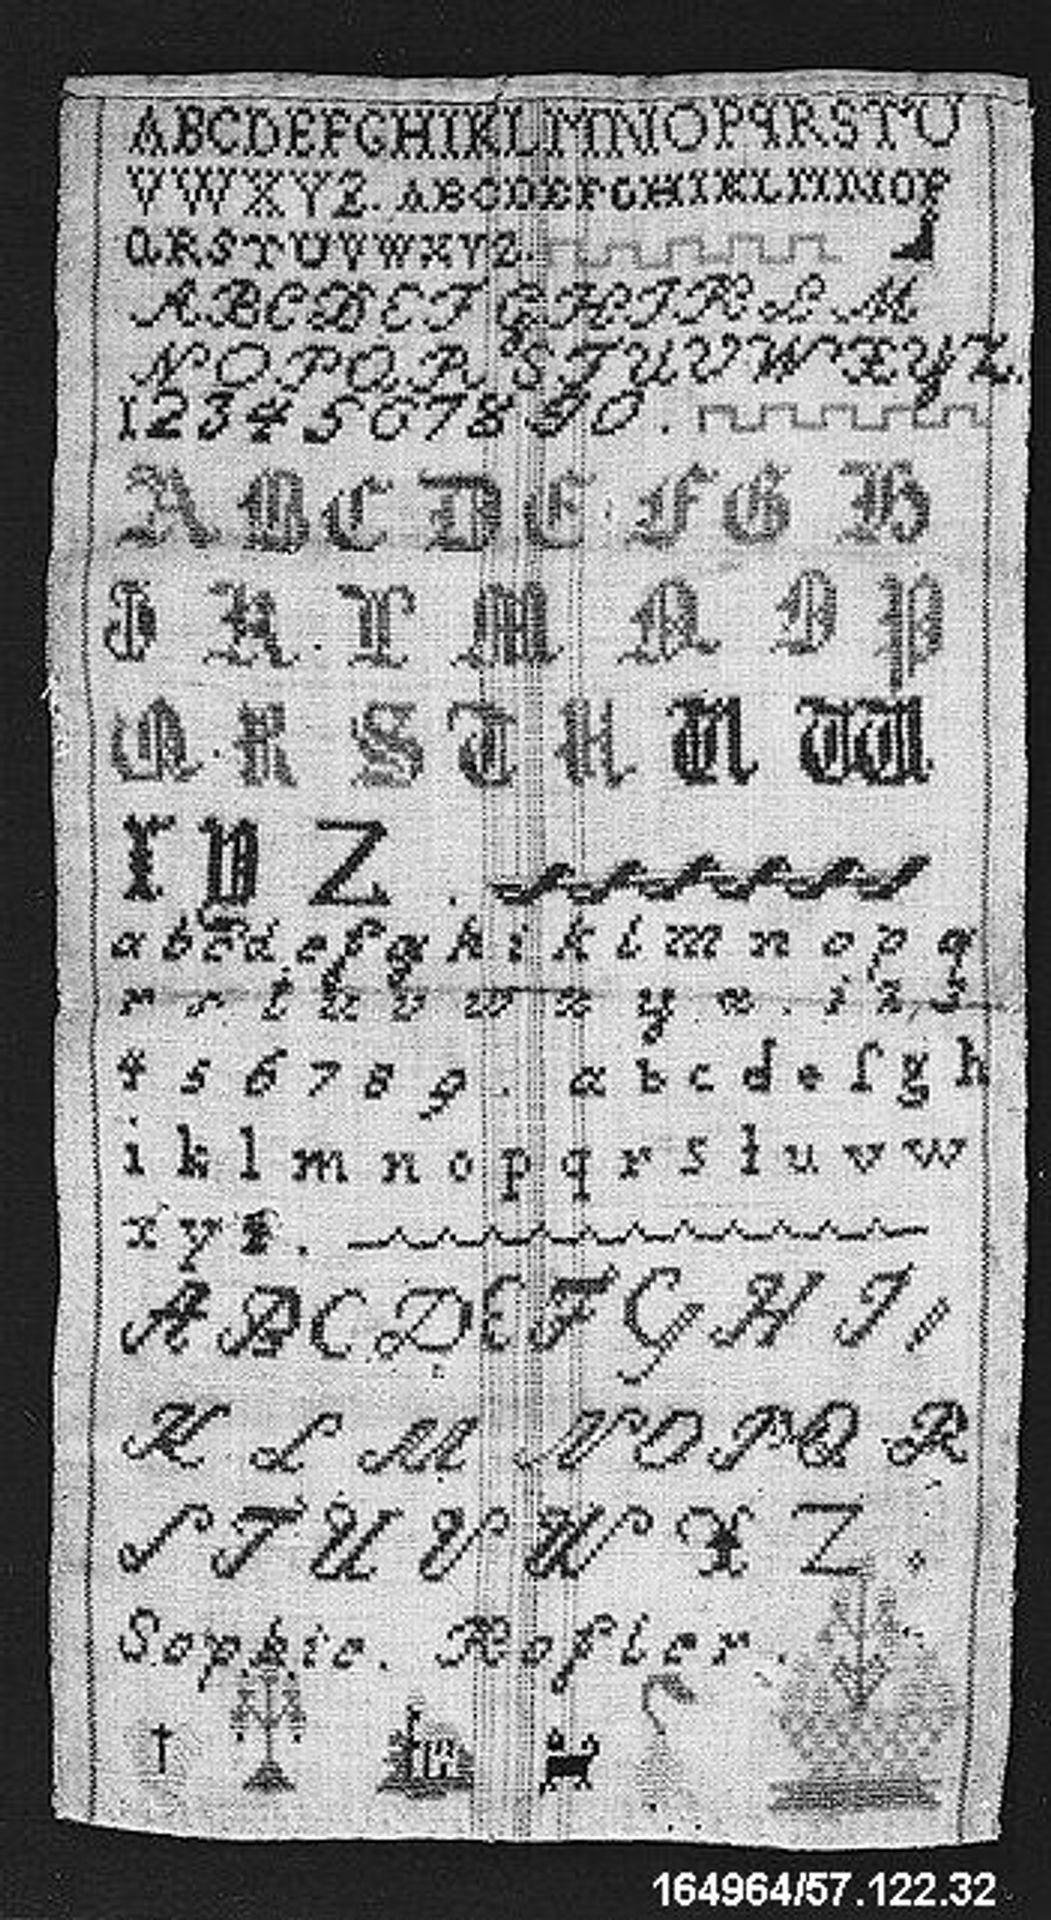 ABCDEFGHIKLMNOPQRSTU
VWXYZ. ABCDEFGHIKLMNOP
QRSTUVWXYZ.
ABCDEFGHIKLM
NOPQRSTUVWXYZ.
1234567890.
ABCDEFGH
IKLMNOP
QRSTUVW
XYZ.
abcdefghiklmnopq
rstuvwxyz. 123
456789. abcdefgh
iklmnopqrstuvw
xyz.
ABCDEFGHI
KLMNOPQR
STUVWXZ.
Sophie.
164964/57.122.32